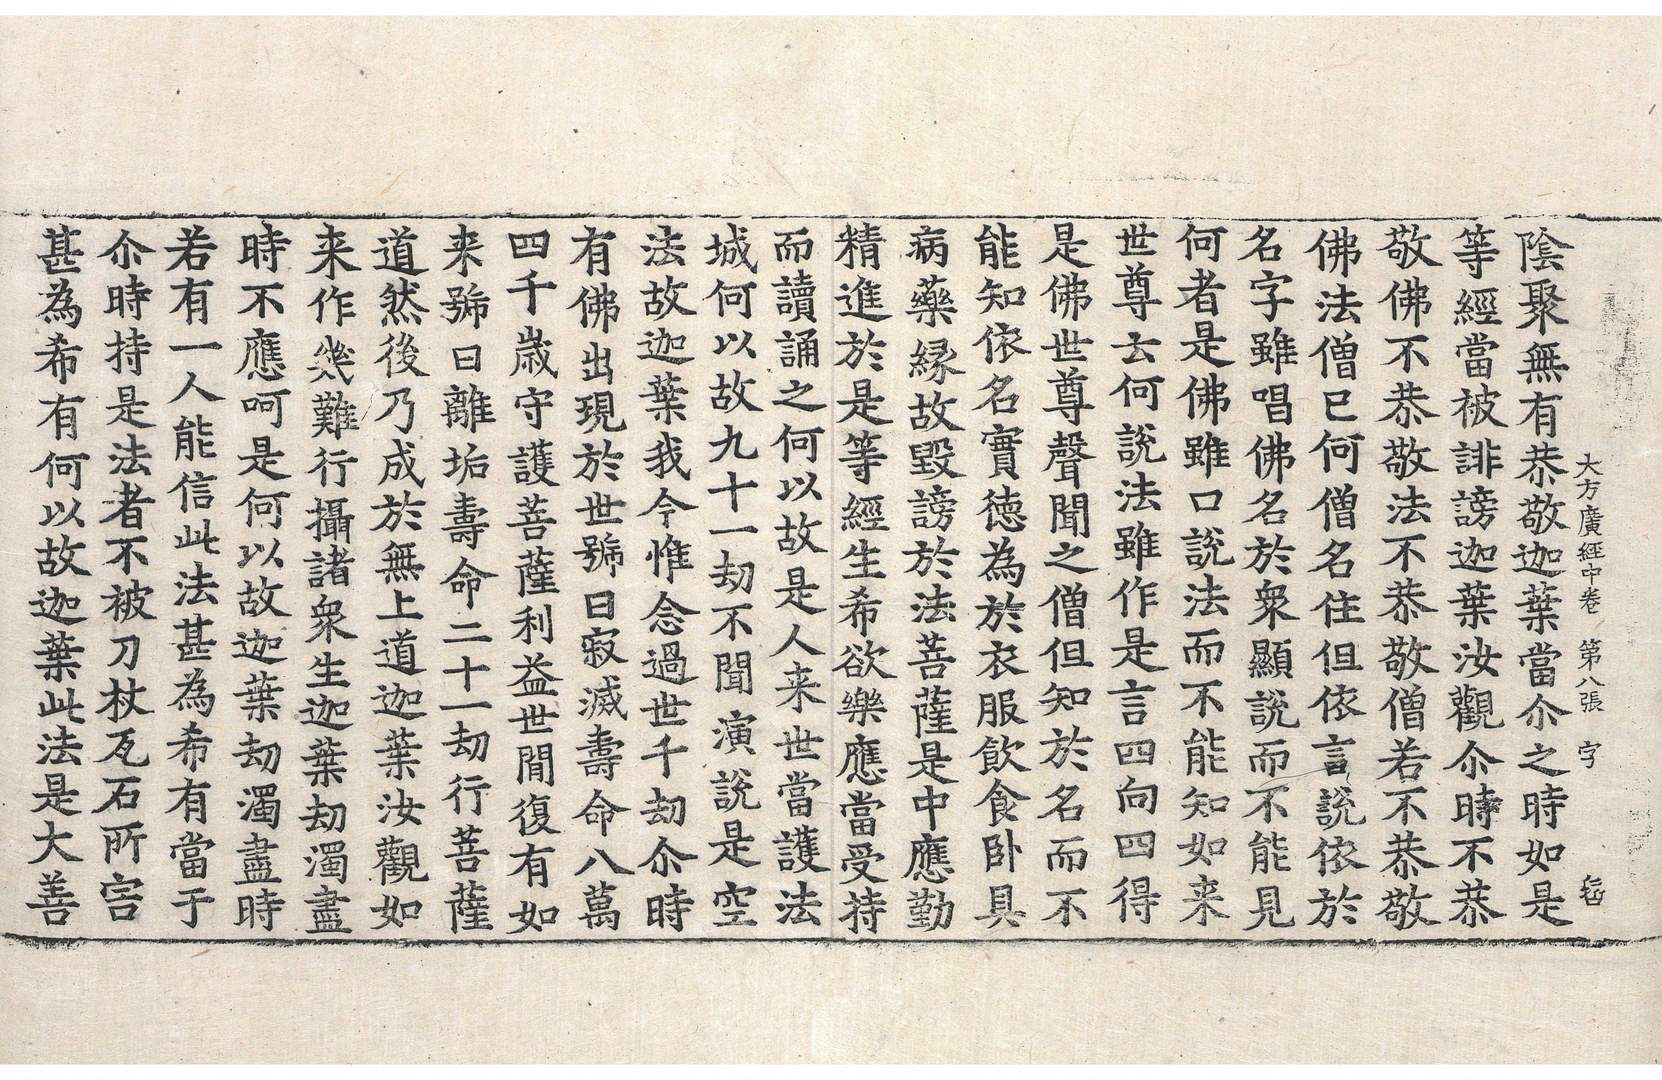 大方廣經中卷 第八張 字
陰聚無有恭敬迦葉當尒之時如是
等經當被誹謗迦葉汝觀尒時不恭
敬佛不恭敬法不恭敬僧若不恭敬
佛法僧已何僧名住但依言說依於
名字雖唱佛名於衆顯說而不能見
何者是佛雖口說法而不能知如来
世尊云何說法雖作是言四向四得
是佛世尊聲聞之僧但知於名而不
能知依名實德為於衣服飲食卧具
病藥縁故毀謗於法菩薩是中應勤
精進於是等經生希欲樂應當受持
而讀誦之何以故是人来世當護法
城何以故九十一劫不聞演說是空
法故迦葉我今惟念過世千劫尒時
有佛出現於世號曰寂滅壽命八萬
四千歲守護菩薩利益世間復有如
来號曰離垢壽命二十一劫行菩薩
道然後乃成於無上道迦葉汝觀如
来作幾難行攝諸衆生迦葉劫濁盡
時不應呵是何以故迦葉劫濁盡時
若有一人能信此法甚為希有當于
尒時持是法者不被刀杖瓦石所害
甚為希有何以故迦葉此法是大善